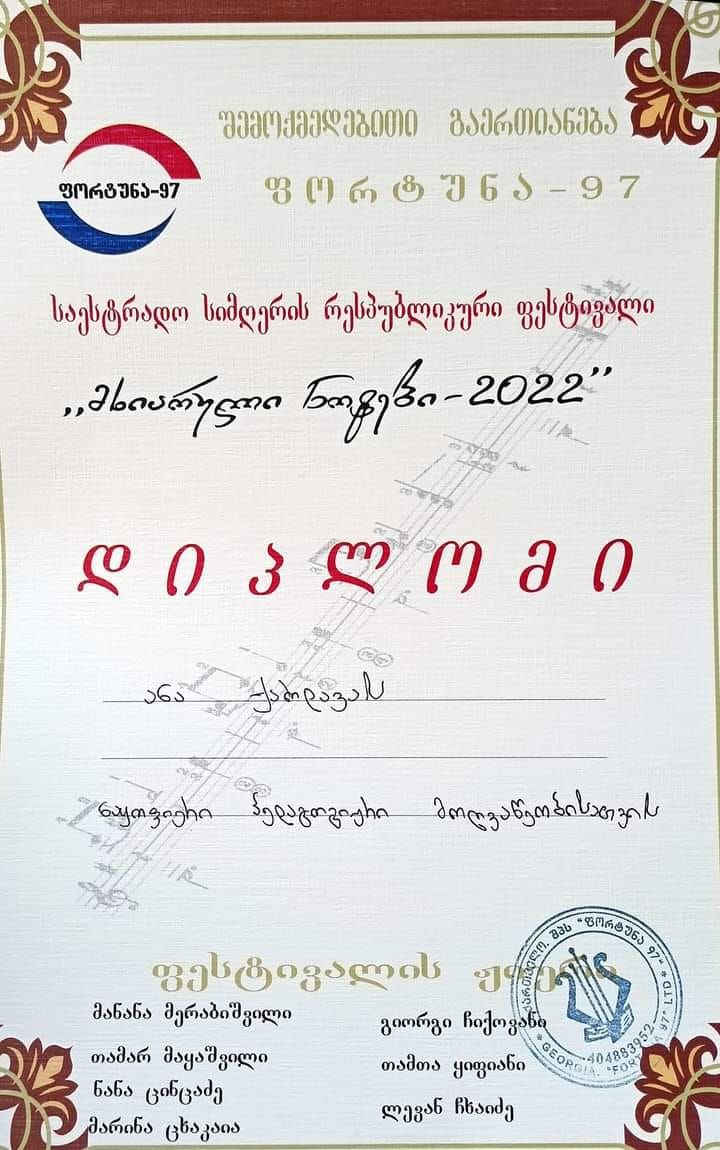 შემოქმედებითი გაერთიანება
ფორტუნა-97
ფორტუნა-97
საესტრადო სიმღერის რესპუბლიკური ფესტივალი
,,მხიარული ნოტები-2022’’
დიპლომი
ანა ქარდავას
ნაყოფიერი პედაგოგიური მოღვაწეობისათვის
ფესტივალის ჟიური
მანანა მერაბიშვილი
თამარ მაყაშვილი
ნანა ცინცაძე
მარინა ცხაკაია
გიორგი ჩიქოვანი
თამთა ყიფიანი
ლევან ჩხაიძე
საქართველო. შპს "ფორტუნა 97" * LTD
* GEORGIA. "FORTUNA 97"
404883952